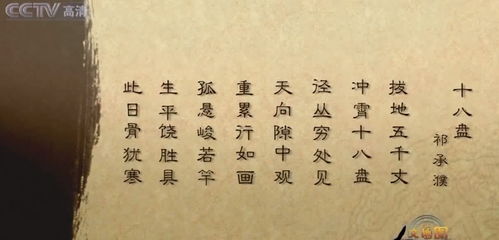 CCTV高清
十八盘
祁承㸁
拔地五千丈
冲霄十八盘
径丛穷处见
天向隙中观
重累行如画
孤悬峻若竿
生平饶胜具
此日骨犹寒